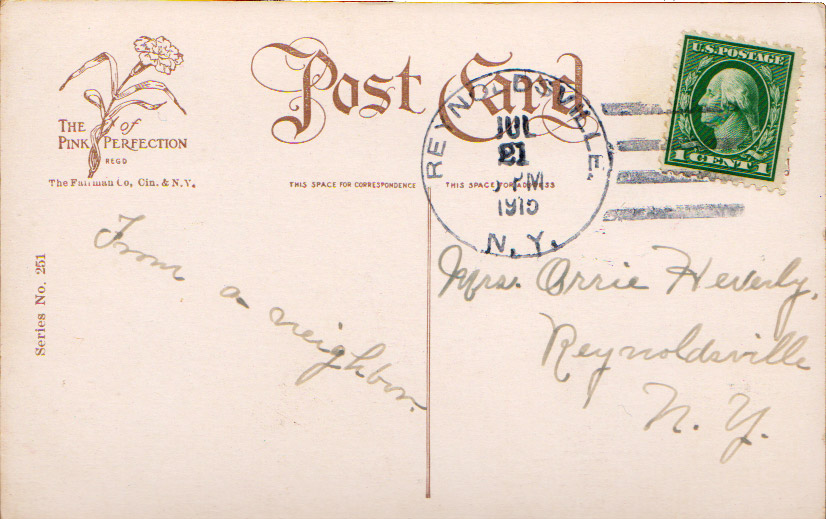 Post Card
U.S. POSTAGE
1 CENT 1
REYNOLDSVILLE,
JUL
21
PM
1915
N.Y.
THE of
PINK PERFECTION
REGD
The Fairman Co, Cin. & N.Y.
THIS SPACE FOR CORRESPONDENCE
THIS SPACE FOR ADDRESS
Series No. 251
From a neighbor.
Mrs. Orrie Heverly,
Reynoldsville
N. Y.